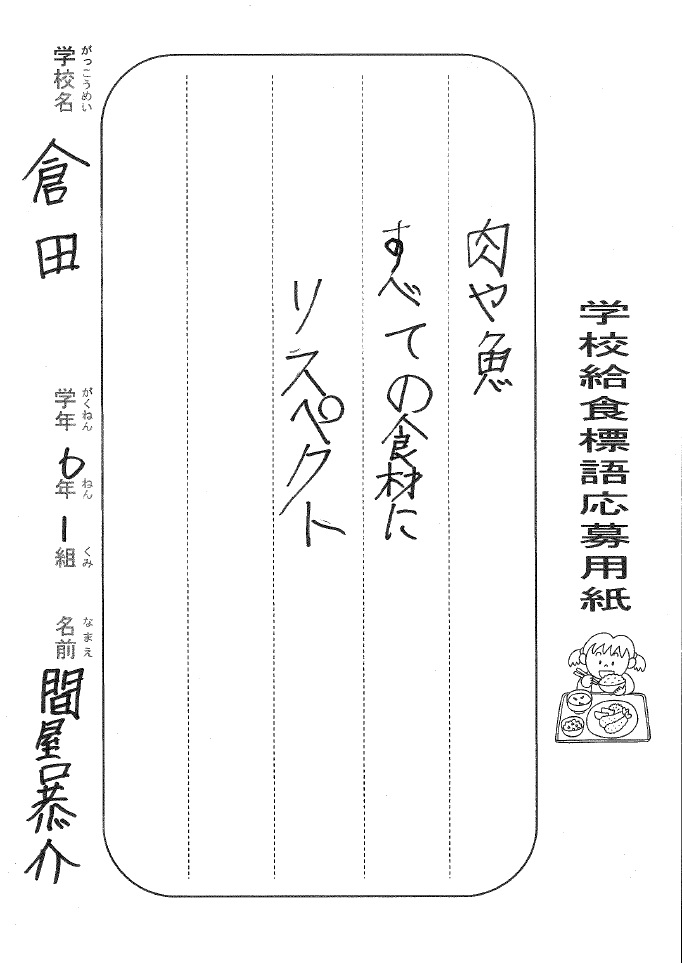 学校給食標語応募用紙
肉や魚
すべての食材に
リスペクト
学校名 がっこうめい
倉田
学年 がくねん
6年 ねん
1組 くみ
名前 なまえ
間屋口恭介